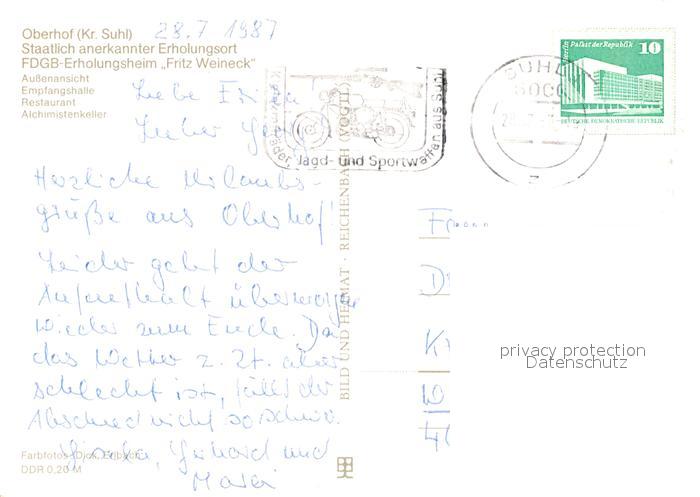 Oberhof (Kr. Suhl) 28.7 1987
Staatlich anerkannter Erholungsort
FDGB-Erholungsheim „Fritz Weineck“
Außenansicht
Empfangshalle
Restaurant
Alchimistenkeller
Liebe
Lieber
Herzliche Urlaubs-
grüße aus Oberhof!
Leider geht der
Aufenthalt übermorgen
wieder zum Ende. Da
das Wetter z. Zt. aber
schlecht ist, fällt der
Abschied nicht so schwer.
Gerhard und
Farbfotos: Dick, Erlbach
DDR 0,20 M
BILD UND HEIMAT · REICHENBACH (VOGTL)
Jagd- und Sportwaffen aus Suhl
SUHL
Berlin Palast der Republik 10
DEUTSCHE DEMOKRATISCHE REPUBLIK
D
K
W
4
privacy protection
Datenschutz